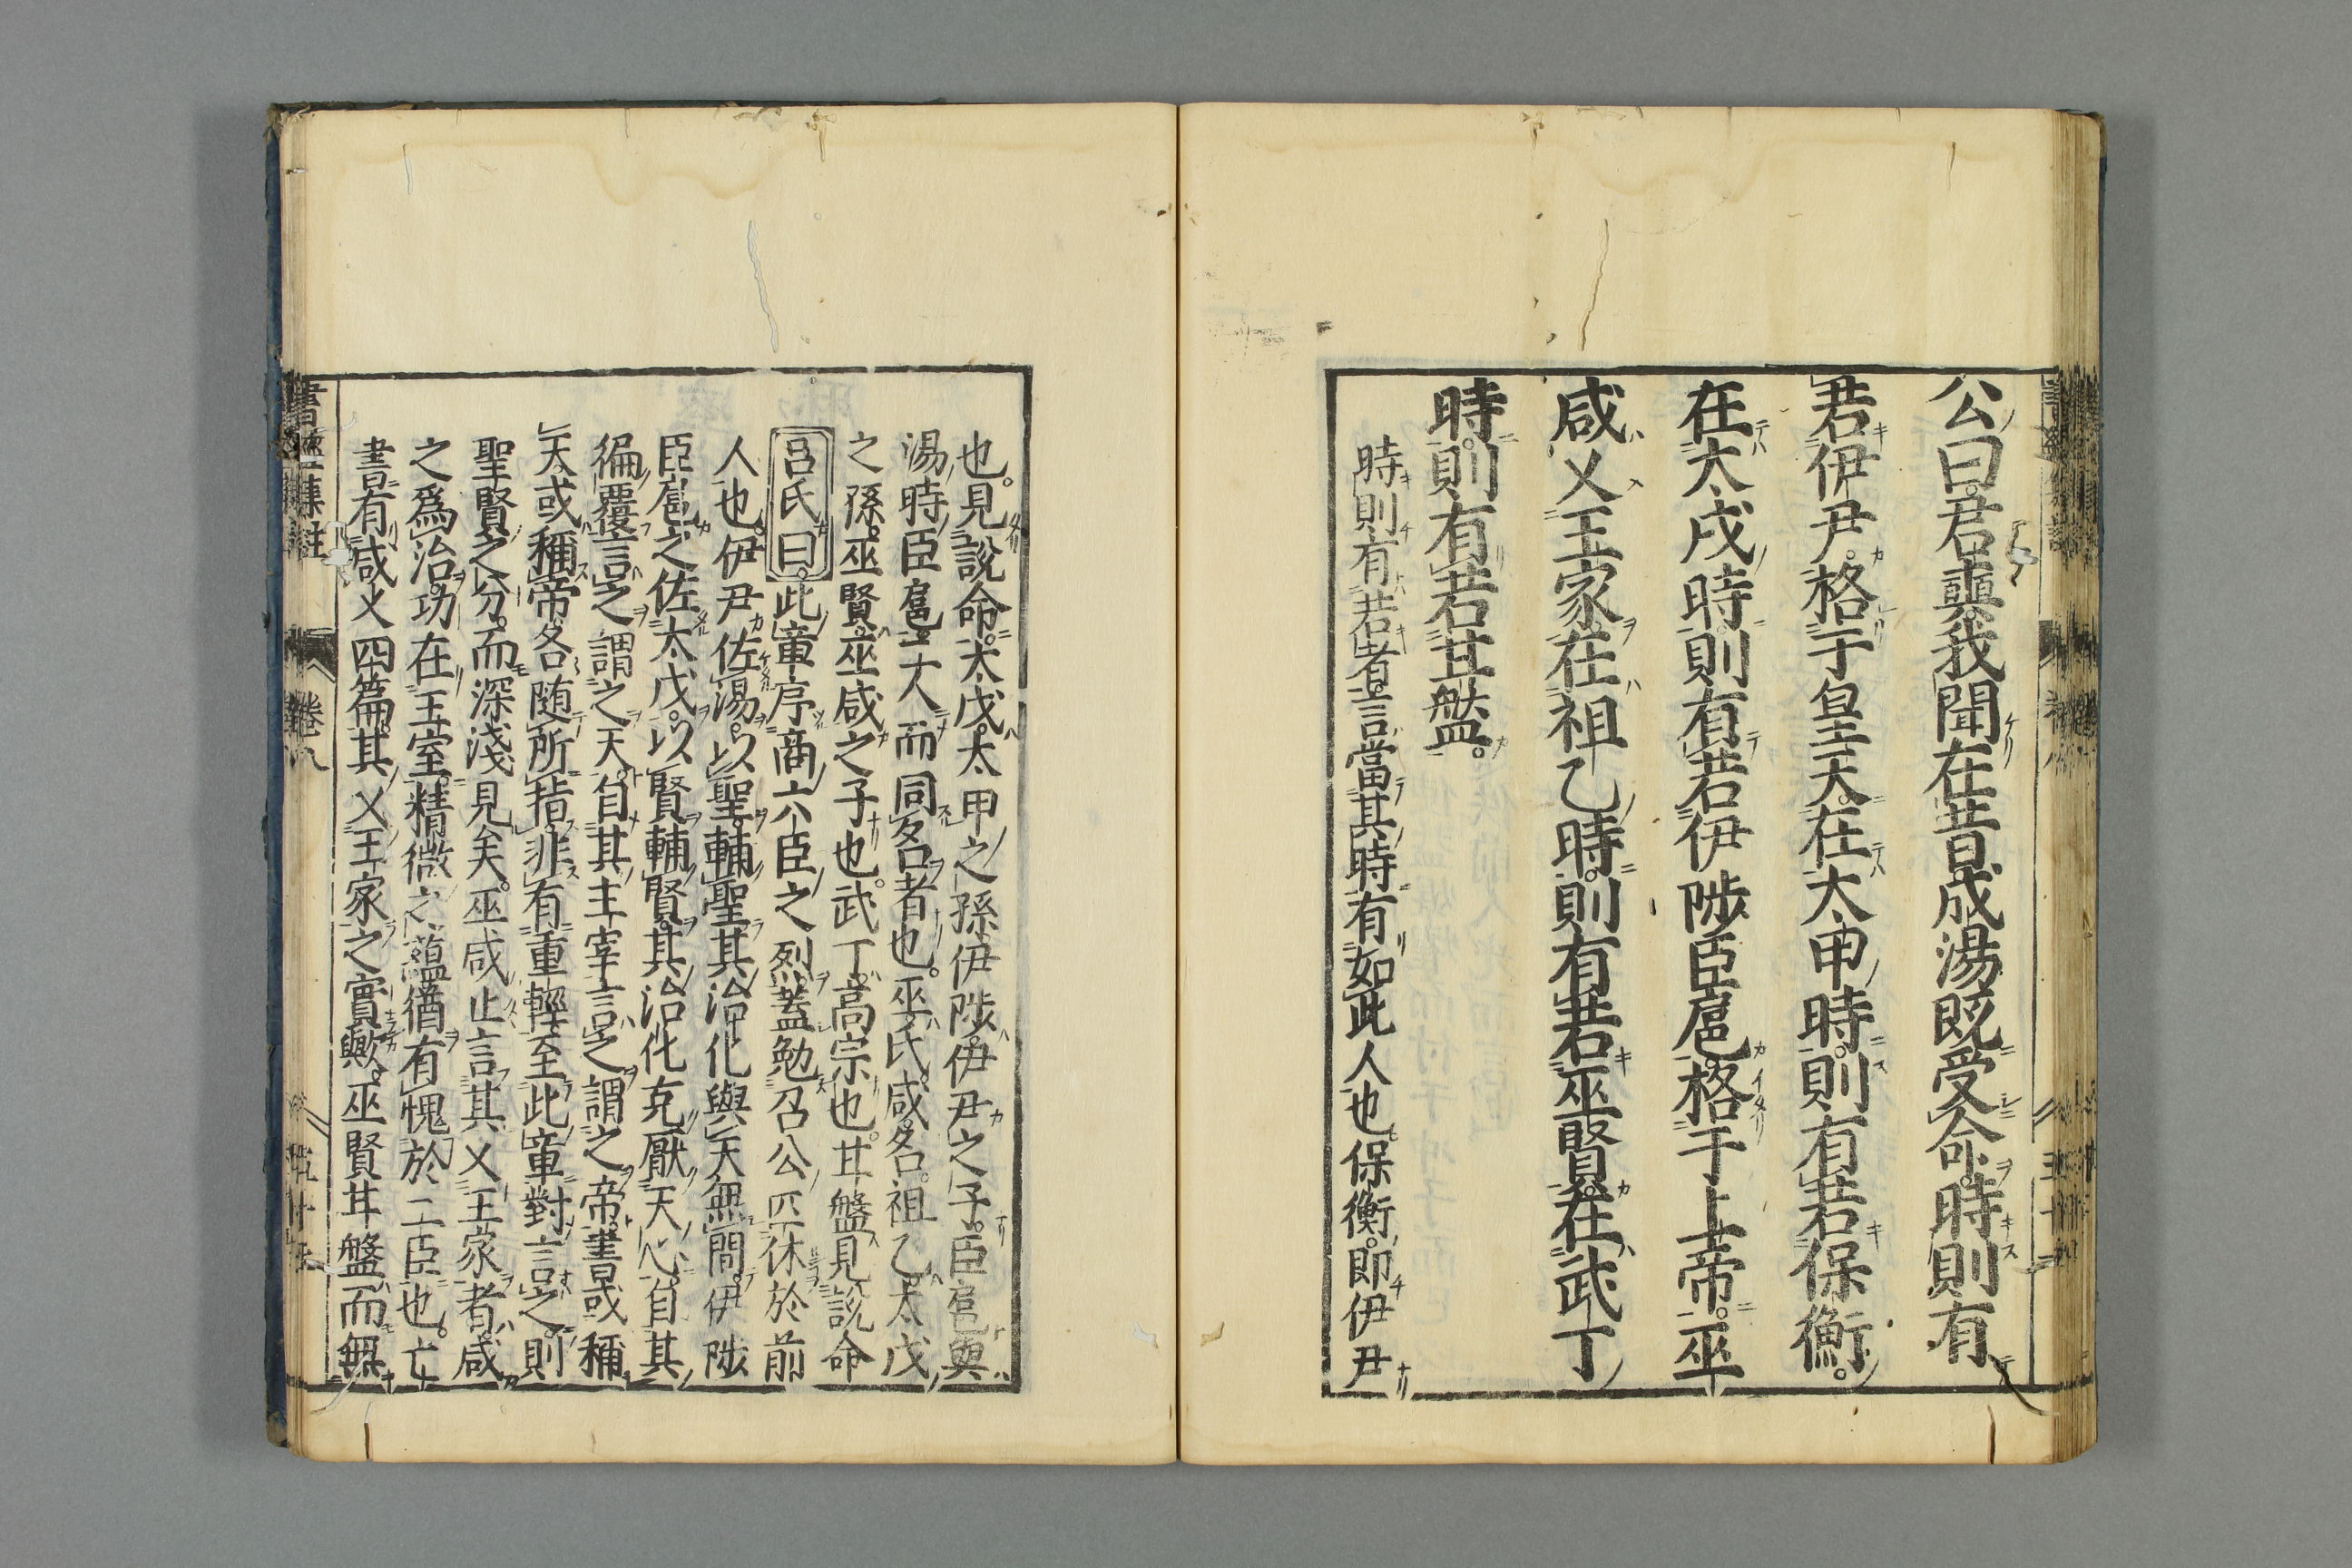 公曰君奭我聞在昔成湯既受命時則有
若伊尹格于皇天在太甲時則有若保衡
在太戊時則有若伊陟臣扈格于上帝巫
咸乂王家在祖乙時則有若巫賢在武丁
時則有若甘盤
時則有若者言當其時有如此人也保衡即伊尹
也見說命太戊太甲之孫伊陟伊尹之子臣扈與
湯時臣扈二人而同名者也巫氏咸名祖乙太戊
之孫巫賢巫咸之子也武丁高宗也甘盤見說命
呂氏曰此章序商六臣之烈蓋勉召公匹休於前
人也伊尹佐湯以聖輔聖其治化與天無間伊陟
臣扈之佐太戊以賢輔賢其治化克厭天心自其
徧覆言之謂之天自其主宰言之謂之帝書或稱
天或稱帝各随所指非有重輕至此章對言之則
聖賢之分而深淺見矣巫咸止言其乂王家者咸
之爲治功在王室精微之蘊猶有愧於二臣也亡
書有咸乂四篇其乂王家之實歟巫賢甘盤而無
書經集註 卷八